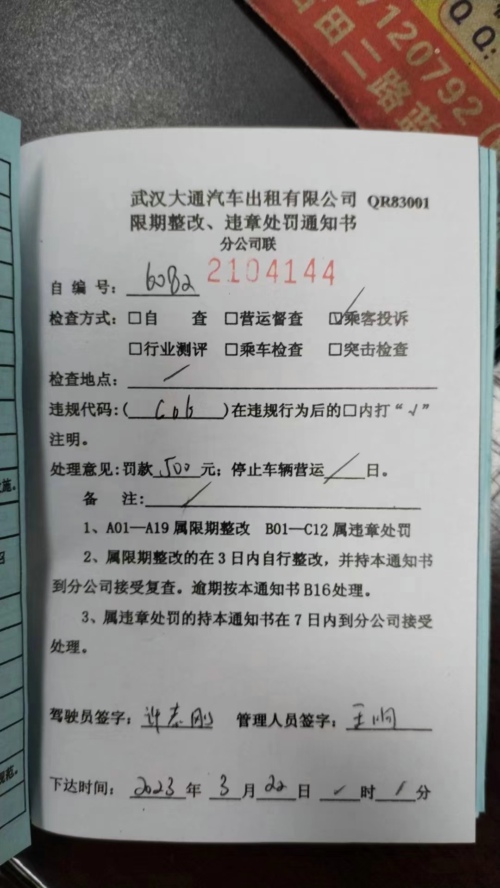 7120792
QQ:
田二路蓝
武汉大通汽车出租有限公司 QR83001
限期整改、违章处罚通知书
分公司联
自编号: 60B2 2104144
检查方式: □自 查 □营运督查 ☑乘客投诉
□行业测评 □乘车检查 □突击检查
检查地点: /
违规代码:( C06 )在违规行为后的□内打“√”
注明。
处理意见:罚款 500 元; 停止车辆营运 / 日。
备 注: /
1、A01—A19属限期整改 B01—C12属违章处罚
2、属限期整改的在3日内自行整改,并持本通知书
到分公司接受复查。逾期按本通知书B16处理。
3、属违章处罚的持本通知书在7日内到分公司接受
处理。
驾驶员签字: 许志刚 管理人员签字: 王炯
下达时间: 2023 年 3 月 22 日 / 时 / 分